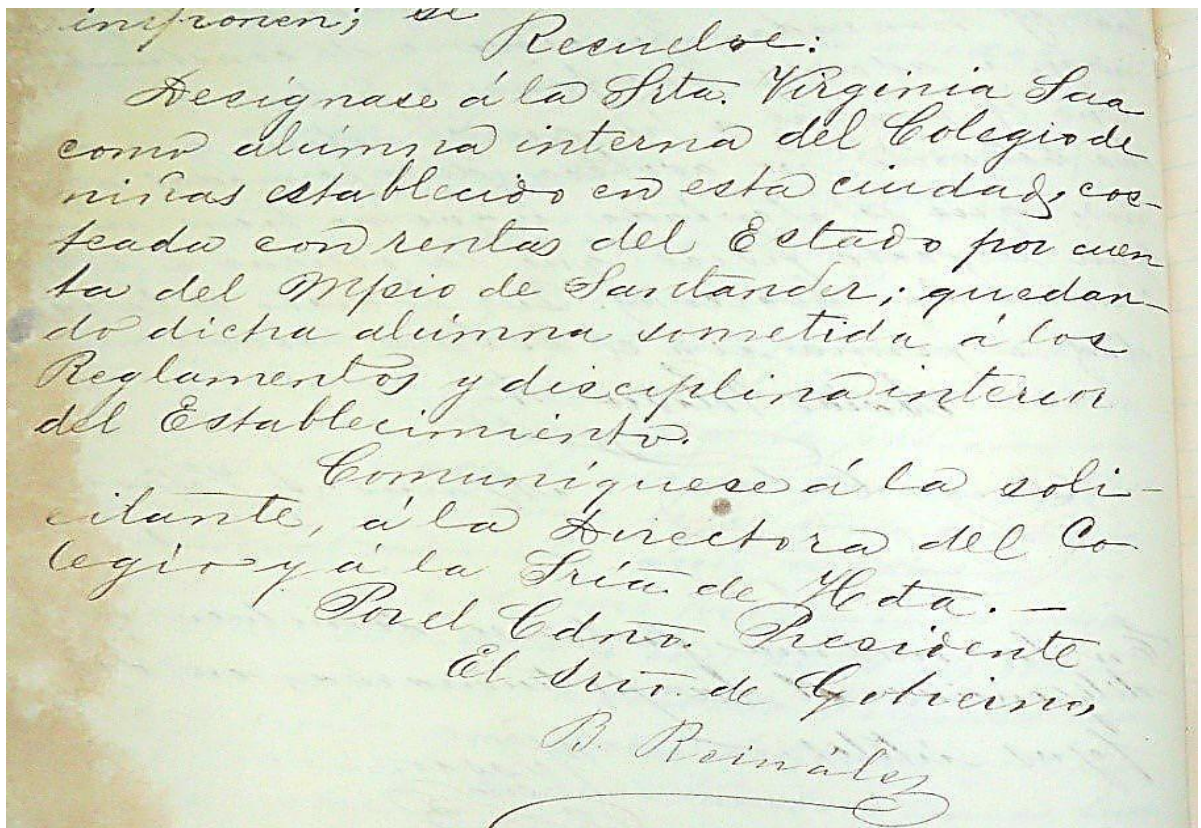 imponen; se
Resuelve:
Desígnase á la Srta. Virginia Saa
como alumna interna del Colegio de
niñas establecido en esta ciudad, cos-
teada con rentas del Estado por cuen
ta del Mpio de Santander; quedan-
do dicha alumna sometida á los
Reglamentos y disciplina interior
del Establecimiento.
Comuníquese á la soli-
citante, á la Directora del Co-
legio y á la Sría de Hda. —
Por el Cdno. Presidente
El Srio. de Gobierno,
B. Reinales